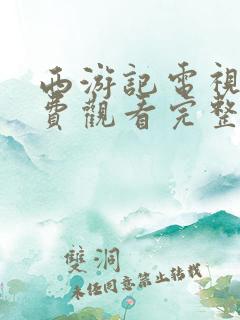 西游記電視
費觀看完整
雙洞
未任同意禁止轉載